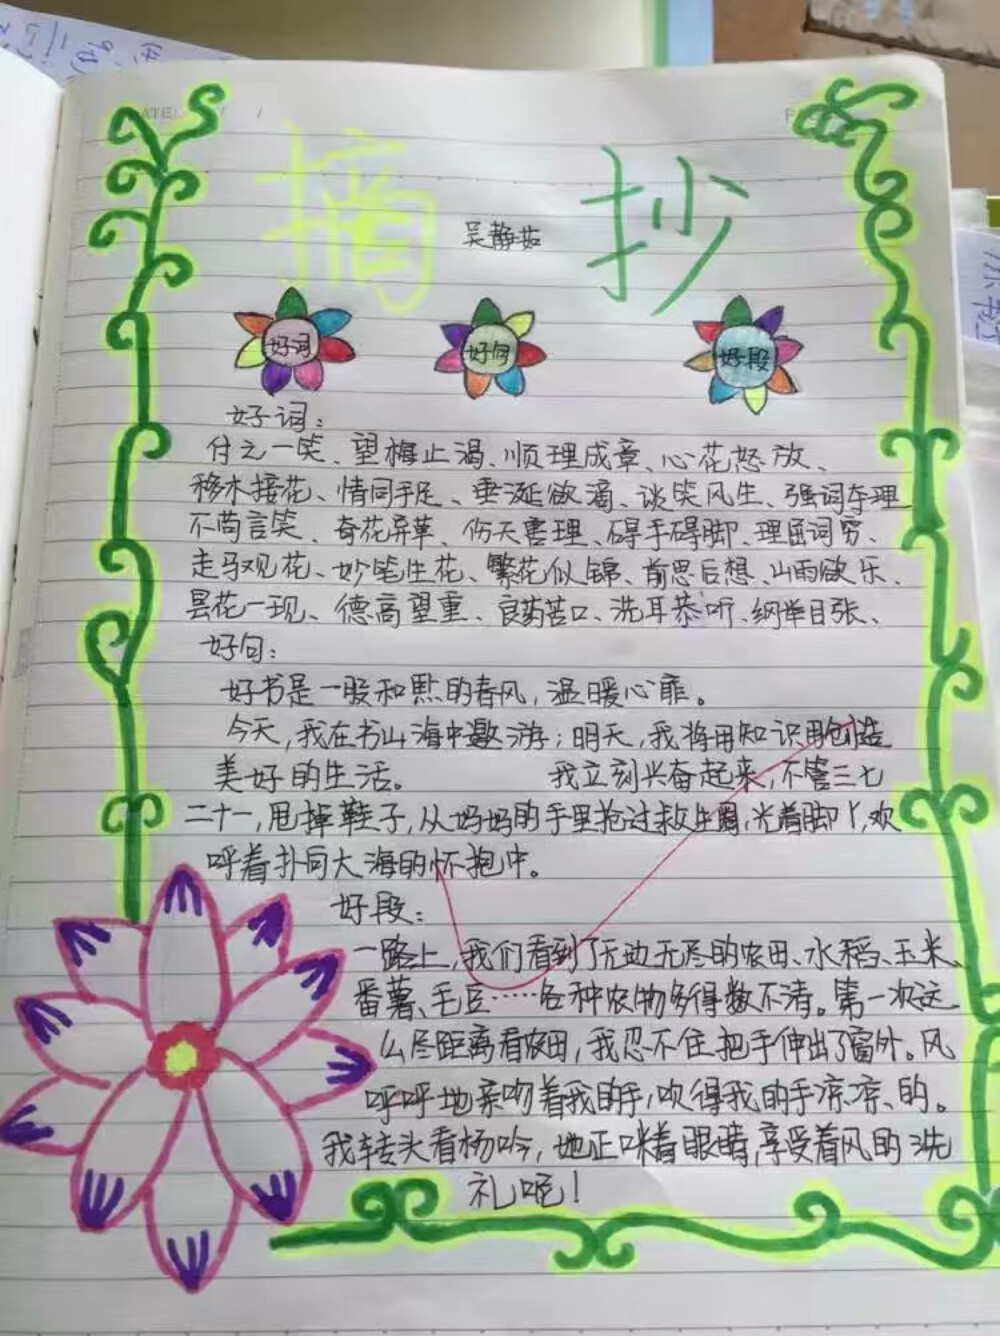 摘 抄
吴静茹
好词 好句 好段
好词：
付之一笑、望梅止渴、顺理成章、心花怒放、
移木接花、情同手足、垂涎欲滴、谈笑风生、强词夺理
不苟言笑、奇花异草、伤天害理、碍手碍脚、理屈词穷、
走马观花、妙笔生花、繁花似锦、前思后想、山雨欲乐、
昙花一现、德高望重、良药苦口、洗耳恭听、纲举目张、
好句：
好书是一股和煦的春风，温暖心扉。
今天，我在书山海中遨游；明天，我将用知识用创造
美好的生活。 我立刻兴奋起来，不管三七
二十一，甩掉鞋子，从妈妈的手里抢过救生圈，光着脚丫，欢
呼着扑向大海的怀抱中。
好段：
一路上，我们看到了无边无尽的农田、水稻、玉米、
番薯、毛豆……各种农物多得数不清。第一次这
么近距离看农田，我忍不住把手伸出了窗外。风
呼呼地亲吻着我的手，吹得我的手凉凉的。
我转头看杨吟，她正眯着眼睛，享受着风的洗
礼呢！